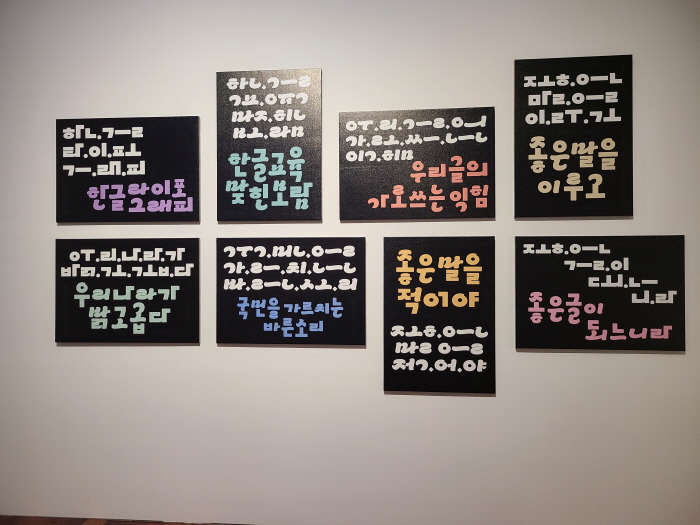 하ㄴ.ㄱㅡㄹ
라.이.ㅍㅗ
ㄱㅡ.래.피
한글라이포
그래피
하ㄴ.ㄱㅡㄹ
ㄱㅛ.ㅇㅠㄱ
마ㅈ.히ㄴ
ㅂㅗ.라ㅁ
한글교육
맞힌보람
ㅇㅜ.리.ㄱㅡㄹ.ㅇㅢ
가.ㄹㅗ.ㅆㅡ.ㄴㅡㄴ
이ㄱ.히ㅁ
우리글의
가로쓰는 익힘
ㅈㅗㅎ.ㅇㅡㄴ
마ㄹ.ㅇㅡㄹ
이.ㄹㅜ.ㄱㅗ
좋은말을
이루고
ㅇㅜ.리.나.라.가
바ㄺ.ㄱㅗ.ㄱㅗㅂ.다
우리나라가
밝고곱다
ㄱㅜㄱ.미ㄴ.ㅇㅡㄹ
가.ㄹㅡ.치.ㄴㅡㄴ
바.ㄹㅡㄴ.ㅅㅗ.리
국민을가르치는
바른소리
좋은말을
적어야
ㅈㅗㅎ.ㅇㅡㄴ
마ㄹ ㅇㅡㄹ
저ㄱ.어.야
ㅈㅗㅎ.ㅇㅡㄴ
ㄱㅡㄹ.이
ㄷㅚ.ㄴㅡ
니.라
좋은글이
되느니라